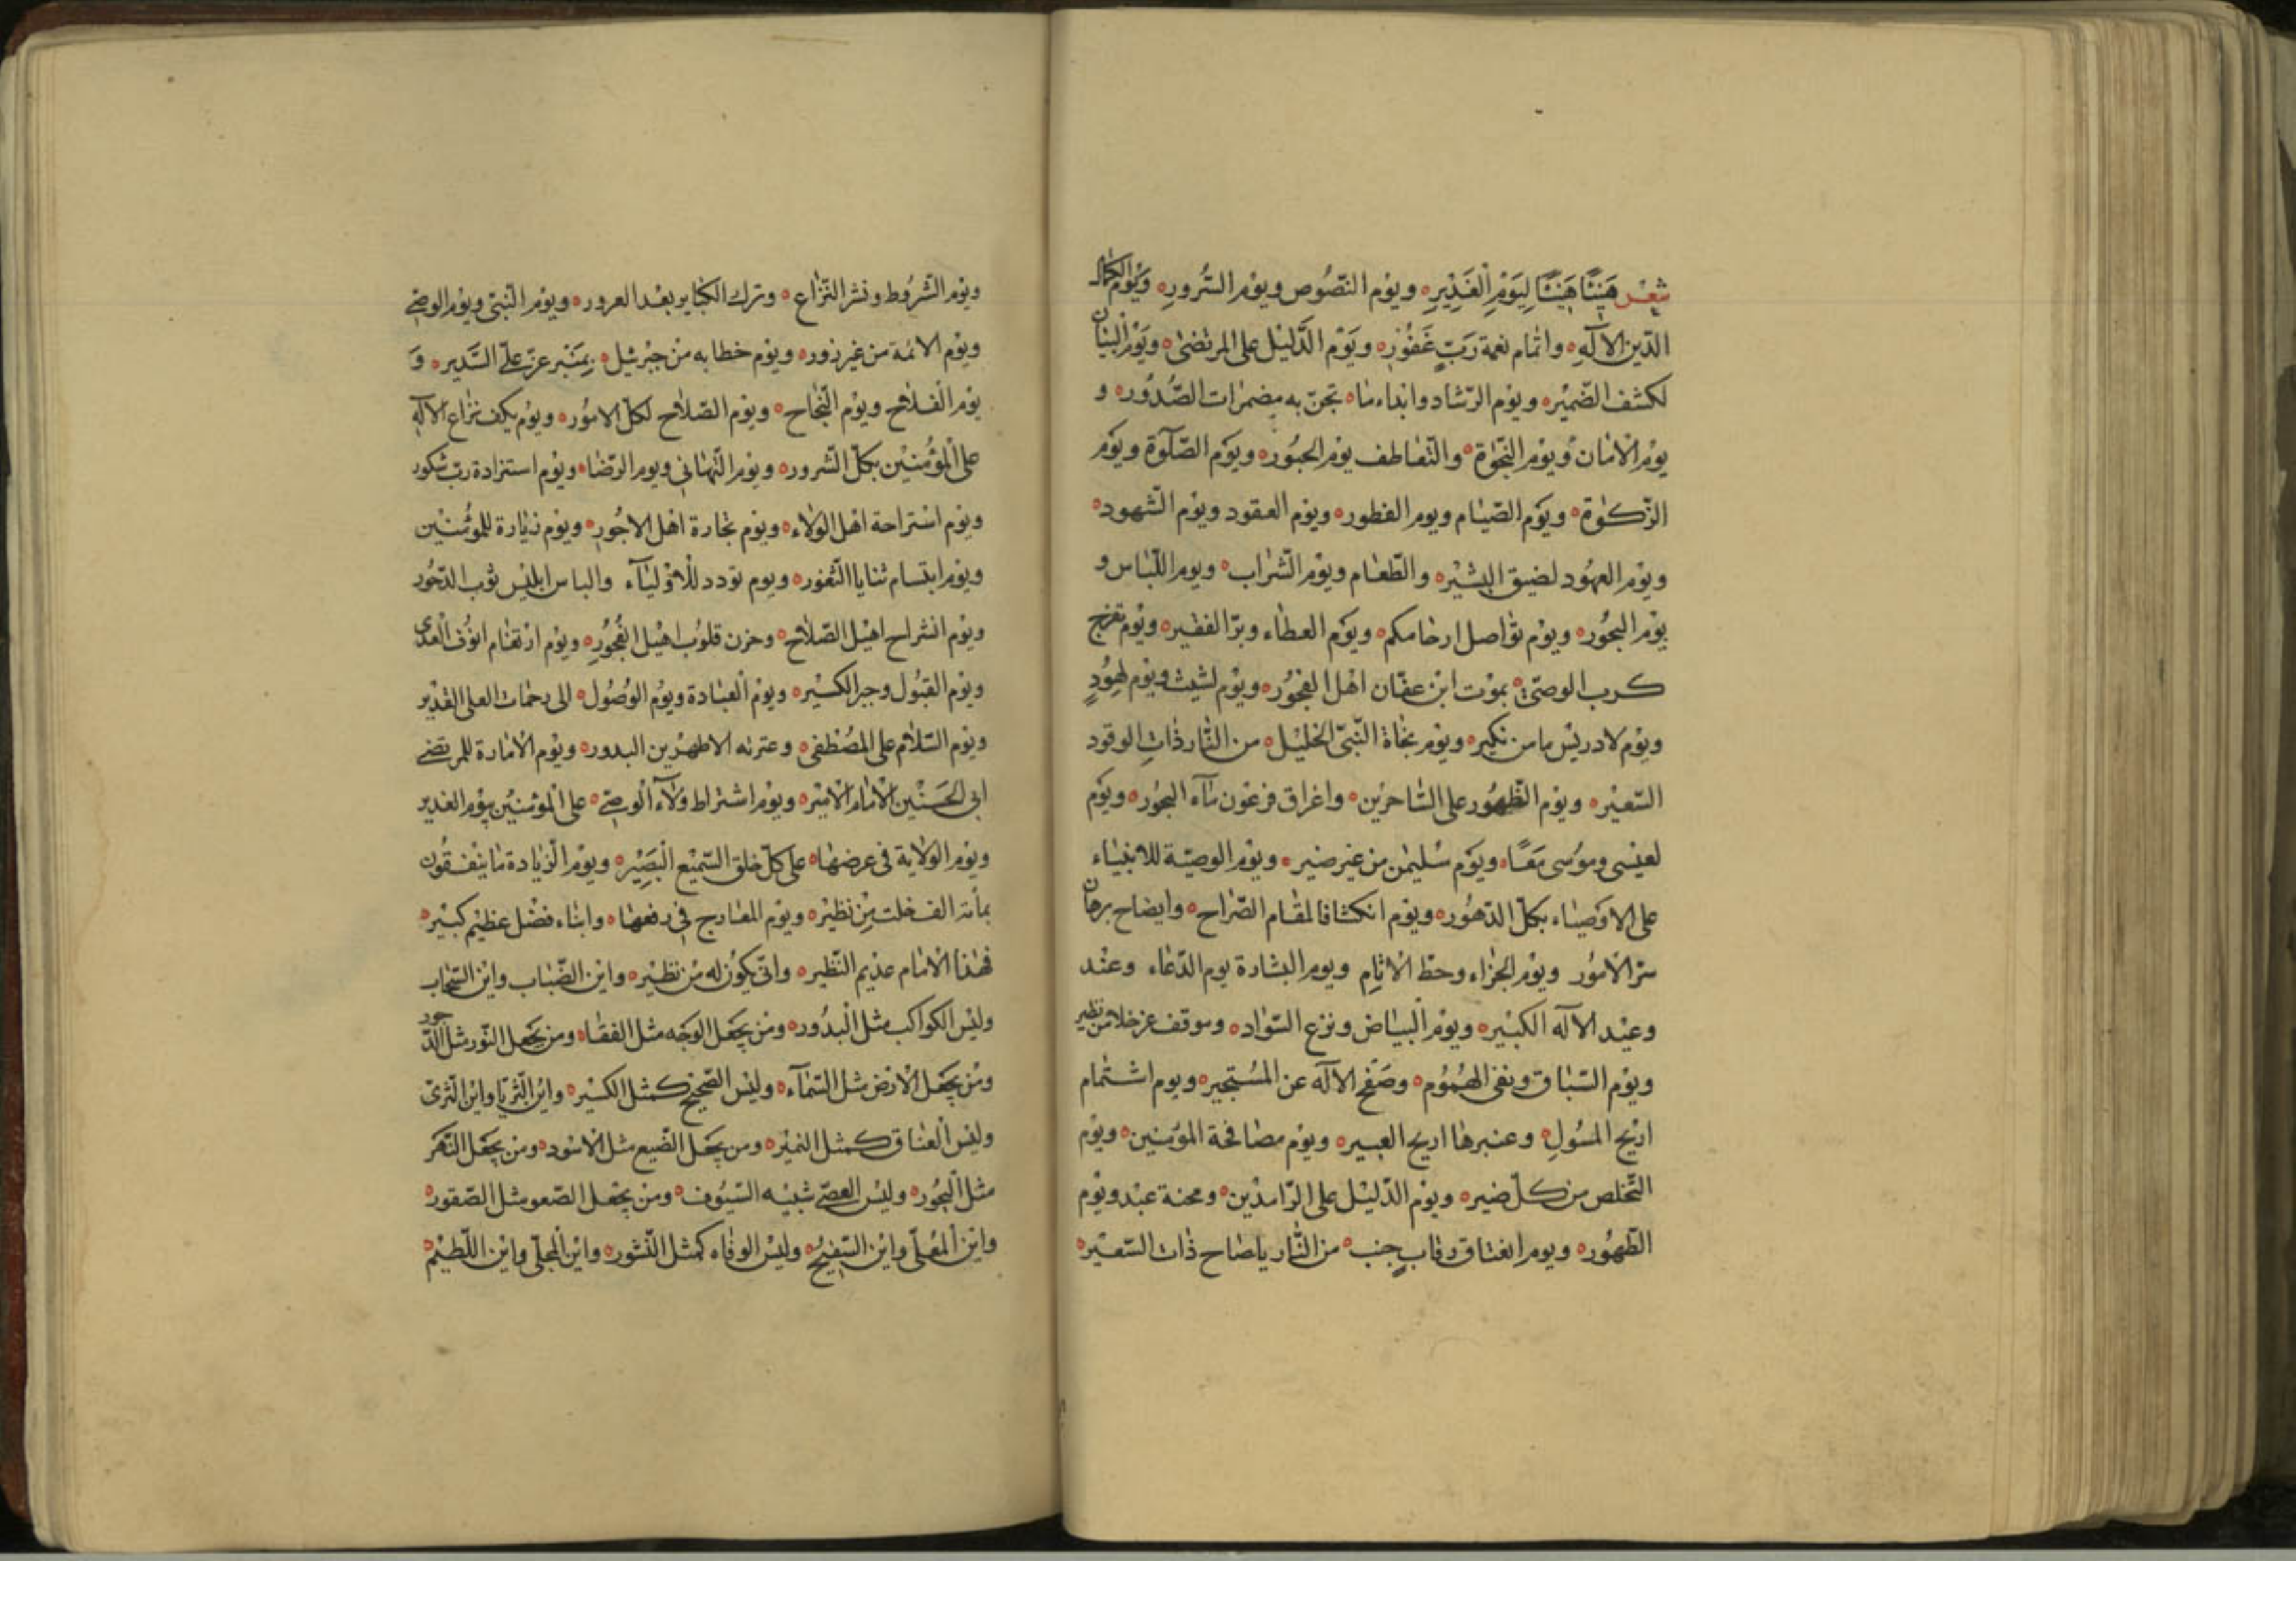 شعر هَنِيئًا هَنِيئًا لِيَوْمِ الْغَدِيْرِ ويوْم النّصُوص ويوْم السُّرورِ ويَوْم الكمال
الدّين الآلهِ واتمام نعمة رَبّ غَفُوْرٍ ويَوْم الدَّليْل على المرتضىٰ ويَوْم البيان
لكشف الضّميْر ويوْم الرّشاد وابداء ما تجنّ به مضمرات الصُّدُور و
يوْم الْامَان وُيوْم النّجٰوة والتّعاطف يوْم الحبُور ويَوْم الصّلٰوة ويَوم
الزّكوٰة ويَوم الصّيام ويوم الفطور ويوم العقود ويوْم الشّهود
ويوْم العهُود لضيق البشيْر والطّعام ويوْم الشّراب ويوم اللّباس و
يوْم البحُور ويوْم توٰاصل ارحامكم ويَوم العطاء وبرّ الفقير ويوْم تفرّج
كرب الوصيّ بموْت ابْن عفّان اهْل الفجُور ويوْم لشيث ويوْم لهُودٍ
ويوْم لادريْس ما من نكير ويوْم نجاة النّبيّ الخليْل من النّار ذات الوقود
السّعيْر ويوْم الظّهُور على السّاحريْن واغراق فرعوْن مآء البحُور ويَوم
لعيْسى وموُسى مَعًا ويَوم سُليمٰن من غير ضير ويوْم الوصيّة للانبيٰاء
على الاوْصيٰاء بكلّ الدّهوُر ويوْم انكشافا لمقام الصّراح وايضاح برهان
سرّ الْامُور ويوْم الجزٰاء وحطّ الْاثام ويوم البشارة يوم الدّعاء وعنْد
وعيْد الآله الكبيْر ويوْم البيٰاض ونزع السّوٰاد وموقف عز خلا من نظير
ويوْم السّباق ونفى الهُمُوْم وصَفح الآله عن المسْتجير ويوم اشتمام
اريْج المسُولِ وعنبرها اريج العبير ويوْم مصٰافحة المؤمنين ويوْم
التّخلص من كلّ ضير ويوْم الدّليْل على الرّامديْن ومحنة عبْد ويوْم
الظّهُور ويوم انعتاق رقاب جنب من النّار ياصٰاح ذٰات السّعيْر
ويوْم الشّروُط ونشر النّزاع وترك الكبٰاير بعْد الغرور ويوْم النّبيّ ويوْم الوصيّ
ويوْم الائمّة من غير زور ويوْم خطابه من جبْرئيل بِمَنْبر عزّ على السَّدير وَ
يوْم الْفلاح ويوْم النّجاح ويوْم الصّلاح لكلّ الامُور ويوْم يكف نزاع الآلهِ
على الْمؤْمنيْن بكلّ السّرور ويوْم التّهٰانى ويوم الرّضا ويوْم استزادة ربّ شكور
ويوْم اسْتراحة اهْل الولاء ويوْم تجارة اهْل الاجُور ويوْم زيارة للموْمنيْن
ويوْم ابتسام ثنايا الثّغور ويوم تودد للْاوْليآء والباس ابليْس ثوْب الدّحُور
ويوْم انشراح اهيْل الصّلاح وحزن قلوُب اهيْل الفجُوْرِ ويوْم ارْتغام انوْف العدى
ويوْم القبُول وجبر الكسيْر ويوْم العبٰادة ويوْم الوُصُول الى رحمٰات العلى القدير
ويوْم السّلاٰم على المُصْطفى وعترته الاطهرْين البدور ويوْم الاْمارة للمرتضى
ابى الحَسَنيْن الْامٰام الْامير ويوْم اشتراط ولآء الْوصيّ على الْمؤمنيْن بيوْم الغدير
ويوْم الولاٰية فى عرضهٰا على كلّ خلق السّميْع الْبَصِيْر ويوْم الزّيٰادة ما ينْفقُون
بمأة الف خلت مِنْ نظيْر ويوْم المعٰارج فى رفعهٰا وايتاء فضْل عظيْم كبيْر
فهٰذا الْامٰام عديْم النّظير وانّى يكوُن له منْ نظيْر واين الضّباب وايْن السّحٰاب
وليْس الكواكب مثل الْبدُور ومَن يجعَل الوجَه مثل القفٰا ومن يجْعَل النّور مثل الدّجور
ومَن يجعَل الْارْض مثل السّمٰآء وليْس الصّحيْح كمثل الكسيْر واين الثّريّا واين الثّرىٰ
وليْس الْعنٰاق كمثل النميْر ومن يجعَل الضّبع مثل الْاسْود ومن يجعَل النّهَر
مثل الْبحُور وليْس العصىّ شبيْه السّيُوف ومنْ يجْعل الصّعو مثل الصّقور
وايْن المُعْلّى وايْن السّفيْح وليْس الوفٰاء كمثل النّشور وايْن المجْلّى وايْن اللّطيْم